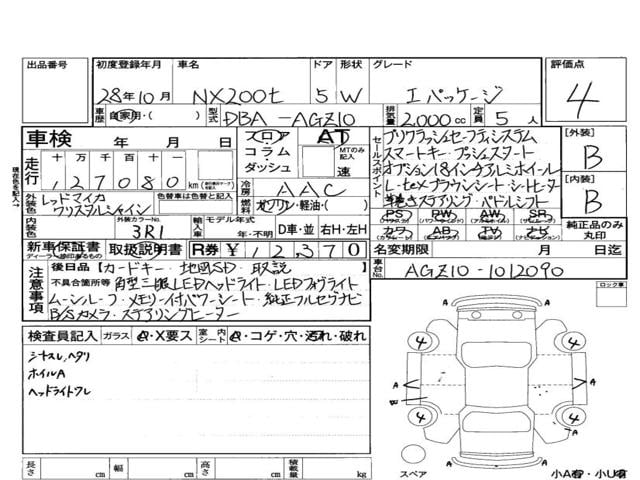 出品番号 初度登録年月 車名 ドア 形状 グレード 評価点
28年10月 NX200t 5 W Iパッケージ 4
車歴 自家用・( ) 型式 DBA-AGZ10 排気量 2,000cc 定員 5人
車検 年 月 日 フロア AT
コラム・ダッシュ MTのみ記入 速
走行 十万千百十一 127080 km
冷房 AAC
燃料 ガソリン・軽油・( )
セールスポイント
プリクラッシュセーフティシステム
スマートキー プッシュスタート
オプション18インチアルミホイール
L-texブラウンシート シートヒーター
ステアリング パドルシフト
PS PW AW SR
カワ AB TV ナビ
純正品のみ丸印
[外装] B
[内装] B
現在色を記入→
外装色 レッドマイカクリスタルシャイン
色替車は色替と記入
内装色
外装カラーNo. 3R1
輸入車 モデル年式 年・不明 D車・並 右H・左H
新車保証書 取扱説明書 R券 ¥12370
ディーラー捺印有るもの
名変期限 月 日迄
車台No. AGZ10-1012090
注意事項
後日品 [カードキー・地図SD・取説
不具合箇所等 角型三眼LEDヘッドライト・LEDフォグライト
ムーンルーフ・メモリー付パワーシート・純正フルセグナビ
B/Sカメラ・ステアリングヒーター
ロック車
検査員記入 ガラス A・X要ス 室内シート A・コゲ・穴・汚れ・破れ
シナスレ,ヘタリ
ホイルA
ヘッドライトウレ
4 4
A A
B
4 4
A A
A
スペア
小A有・小U有
長さ cm 幅 cm 高さ cm 積載量 kg